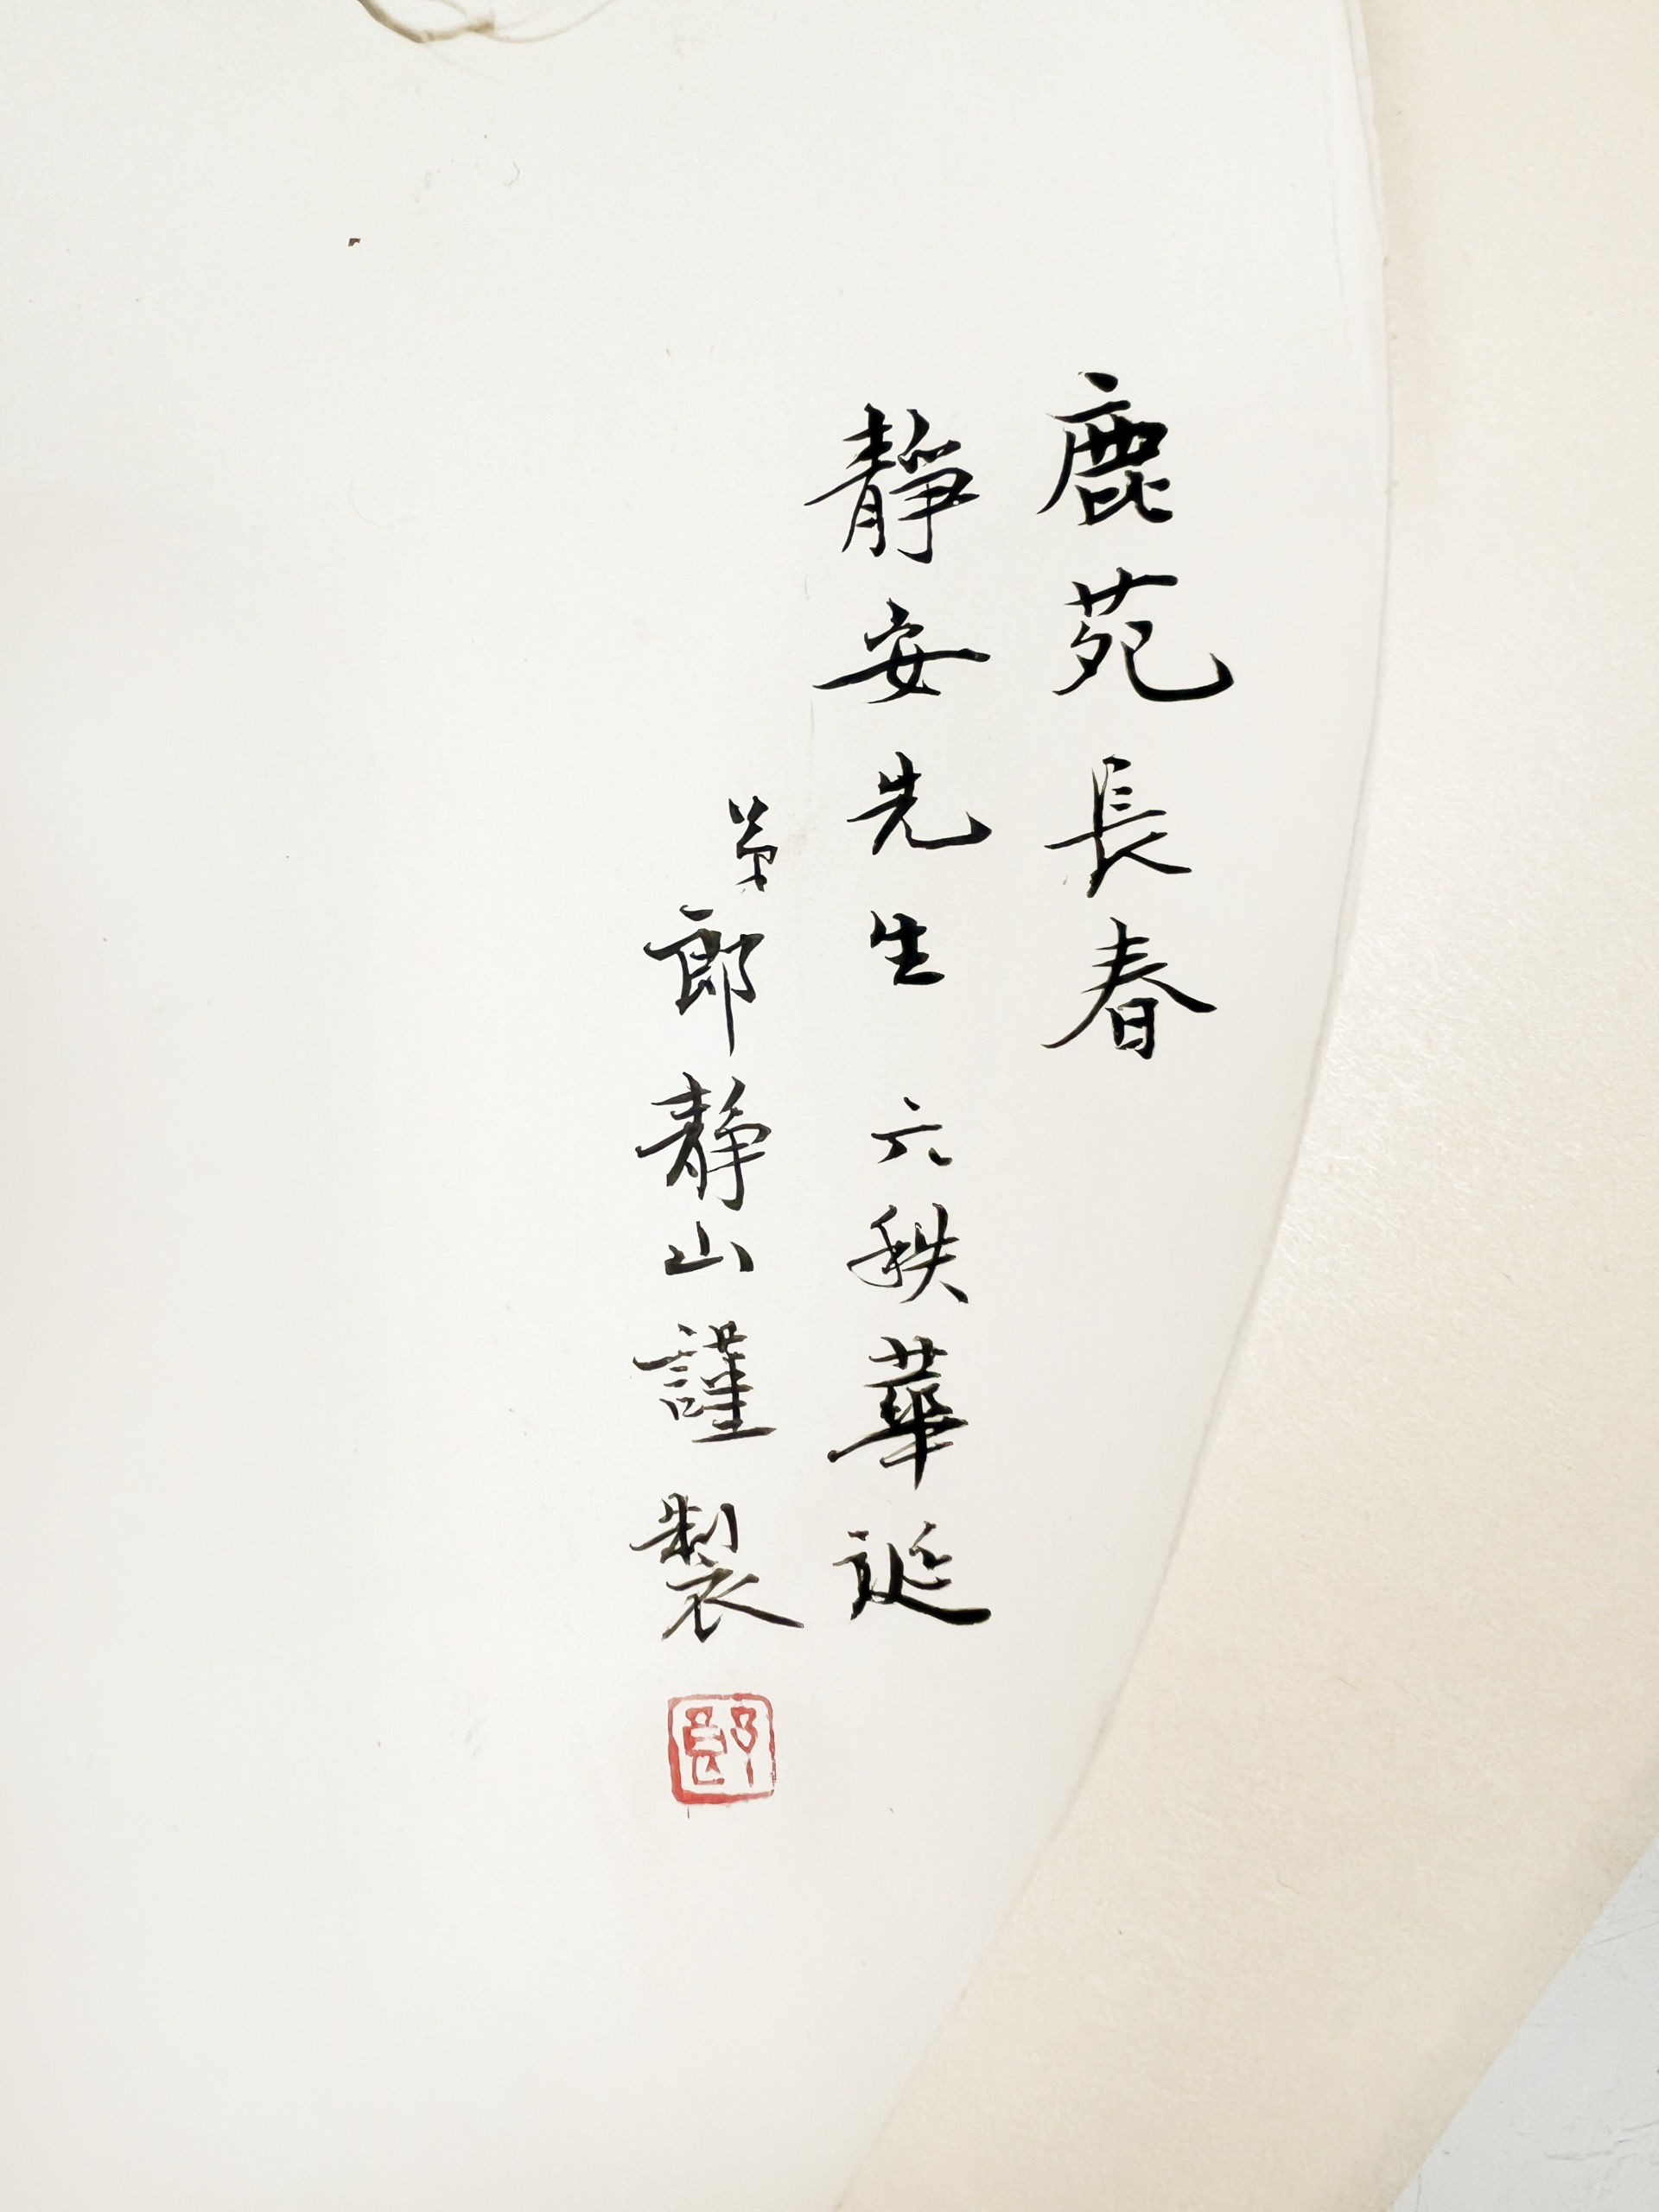 鹿苑長春
靜安先生 六秩華誕
弟郎静山謹製
郎